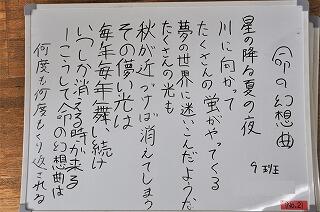 命の幻想曲
9班
星の降る夏の夜
川に向かって
たくさんの蛍がやってくる
夢の世界に迷いこんだようだ
たくさんの光も
秋が近づけば消えてしまう
その儚い光は
毎年毎年舞い続け
いつしか消える時が来る
ーこうして命の幻想曲は
何度も何度もくり返される
No.21